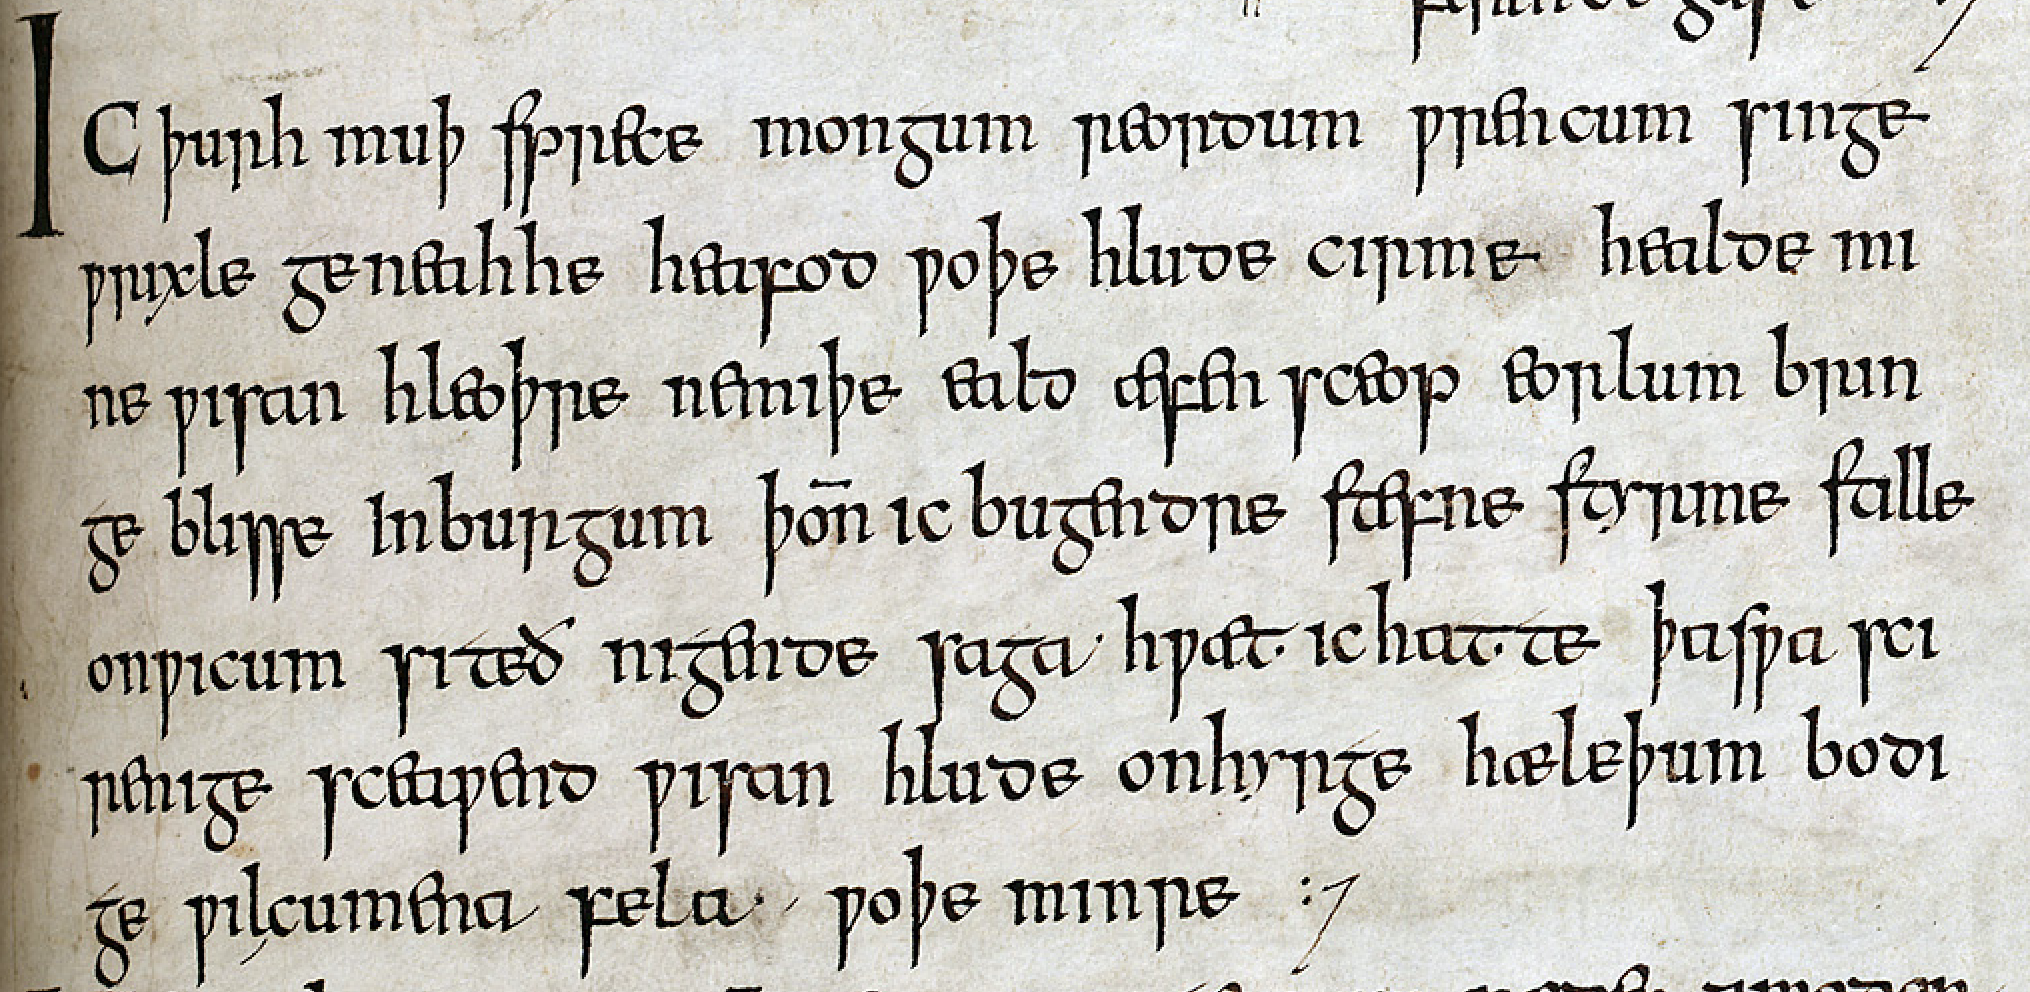 IC þurh muþ sprece mongum reordum ƿrencum singe
ƿrixle geneahhe heafod ƿoþe hlude cirme healde mi
ne ƿisan hleoþre nemiþe eald æfen sceop eorlum brin
ge blisse inburgum þon̄ ic bugendre stefne styrme stille
onƿicum siteð nigende saga hƿæt ic hatte þasƿa sci
renige sceaƿend ƿisan hlude onhyrge hæleþum bodi
ge ƿilcumena fela ƿoþe minre :7